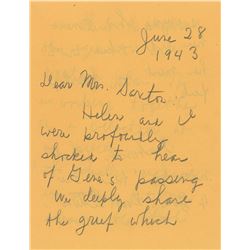 June 28
1943
Dear Mrs. Saxton..
Helen and I
were profoundly
shocked to hear
of Gene's passing
We deeply share
the grief which